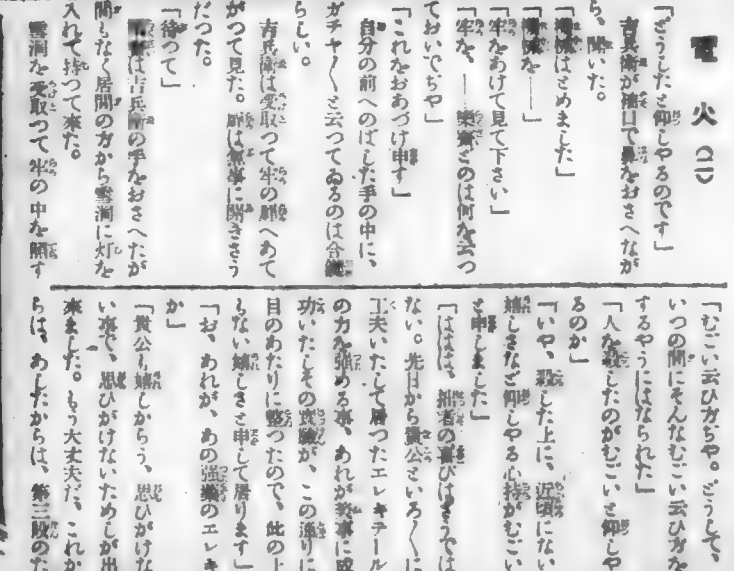 電火（二）
「どうしたと仰しやるのです」
吉兵衛が袖口で鼻をおさへなが
ら、聞いた。
「はさめました」
「を――」
「牢をあけて見て下さい」
「牢を、――樂齋どのは何を云つ
ておいでぢや」
「これをおあづけ申す」
自分の前へのばした手の中に、
ガチヤ〳〵と云つてゐるのは合鍵
らしい。
吉兵衛は受取つて牢の扉へあて
がつて見た。扉は無事に開きさう
だつた。
「待つて」
は吉兵衛の手をおさへたが
間もなく居間の方から雪洞に灯を
入れて持つて來た。
雪洞を受取つて牢の中を照す
「むごい云ひ方ぢや。どうして、
いつの間にそんなむごい云ひ方を
するやうにはなられた」
「人を殺したのがむごいと仰しや
るのか」
「いや、殺した上に、近頃にない
嬉しさなど仰しやる心持がむごい
と申しました」
「ははは、拙者の喜びはさうでは
ない。先日から貴公といろ〳〵に
工夫いたして居つたエレキテール
の力を强める事、あれが無事に成
功いたしその實驗が、この通りに
目のあたりに整つたので、此の上
もない嬉しさと申して居ります」
「お、あれが、あの强いエレキ
か」
「貴公も嬉しからう、思ひがけな
い事で、思ひがけないためしが出
來ました。もう大丈夫だ、これか
らは、あしたからは、第三段のた